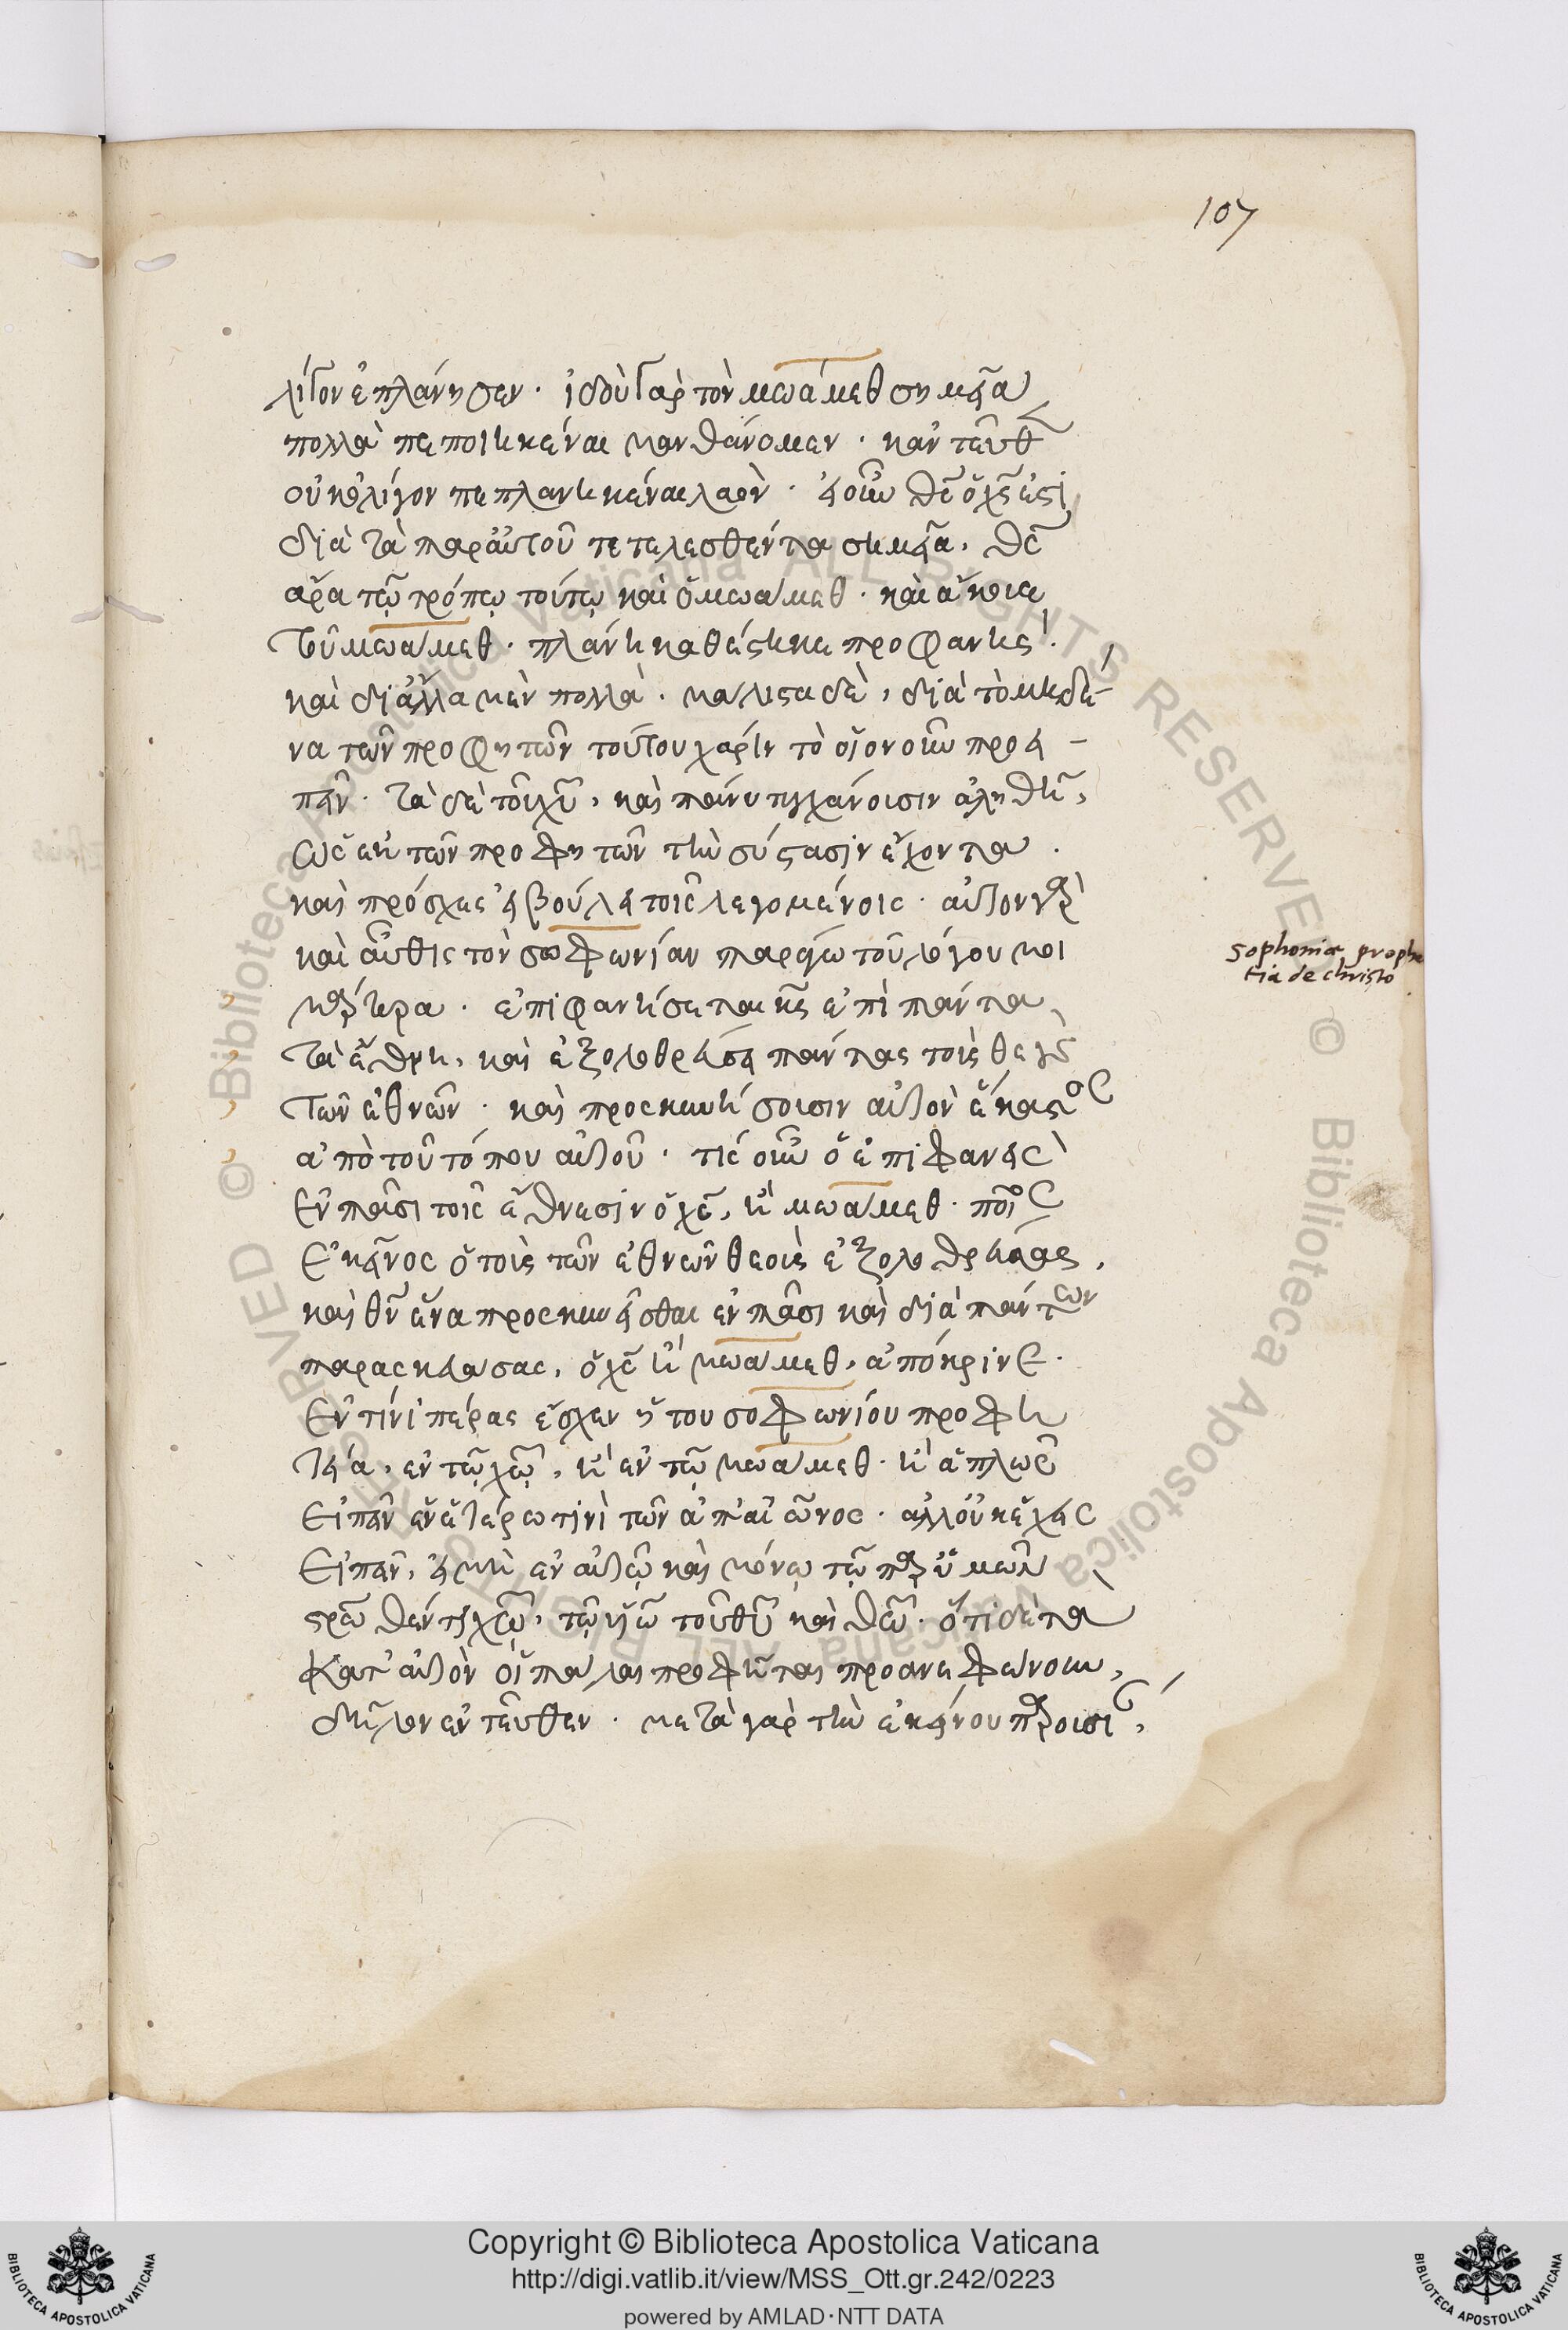 107
λίγον ἐπλάνησεν · ἰδοὺ γὰρ τὸν μωάμεθ σημεῖα
πολλὰ πεποιηκέναι μανθάνομεν · κἀνταῦθ
οὐκ ὀλίγον πεπλανηκέναι λαόν · εἰ οὖν θς ὁ χς ἐστι
διὰ τὰ παρ' αὐτοῦ τετελεσθέντα σημεῖα, θς
ἄρα τῷ τρόπῳ τούτῳ καὶ ὁ μωάμεθ · καὶ
τοῦ μωάμεθ · πλάνη καθέστηκε προφανής ·
καὶ δι' ἄλλα μὲν πολλὰ · μάλιστα δὲ, διὰ τὸ μηδέ-
να τῶν προφητῶν τούτου χάριν τὸ οἷονοῦν προει-
πεῖν · τὰ δὲ τοῦ χυ, καὶ πάνυ τυγχάνουσιν ἀληθῆ,
ὡς ἐκ τῶν προφητῶν τὴν σύστασιν ἔχοντα ·
καὶ πρόσχες εἰ βούλει τοῖς λεγομένοις · αὐτὸν γὰρ
καὶ αὖθις τὸν σοφωνίαν παράγω τοῦ λόγου μοι
μάρτυρα · ἐπιφανήσεται κς ἐπὶ πάντα
τὰ ἔθνη, καὶ ἐξολοθρεύσει πάντας τοὺς θεοὺς
τῶν ἐθνῶν · καὶ προσκυνήσουσιν αὐτὸν ἕκαστος
ἀπὸ τοῦ τόπου αὐτοῦ · τίς οὖν ὁ ἐπιφανεὶς
ἐν πᾶσι τοῖς ἔθνεσιν ὁ χς, ἢ μωάμεθ · ποῖος
ἐκεῖνος ὁ τοὺς τῶν ἐθνῶν θεοὺς ἐξολοθρεύσας,
καὶ θν ἕνα προσκυνεῖσθαι ἐν πᾶσι καὶ διὰ πάντων
παρασκευάσας, ὁ χς ἢ μωάμεθ, ἀπόκρινε ·
ἐν τίνι πέρας ἔσχεν ἡ του σοφωνίου προφη
τεία, ἐν τῷ χῷ, ἢ ἐν τῷ μωάμεθ · ἢ ἁπλῶς
εἰπεῖν ἐν ἑτέρω τινὶ τῶν ἀπ' αἰῶνος · ἀλλ' οὐκ ἔχεις
εἰπεῖν, εἰ μὴ ἐν αὐτῷ καὶ μόνῳ τῷ παρ' ὑμῶν
στρωθέντι χῷ, τῷ υἱῶ τοῦ θυ καὶ θῶ · ὅτι δὲ τὰ
κατ' αὐτὸν οἱ πάλαι προφῆται προανεφώνουν,
δῆλον ἐντεῦθεν · μετὰ γὰρ τὴν ἐκείνου παρουσί,
Sophoniae prophe
tia de christo
Copyright © Biblioteca Apostolica Vaticana
http://digi.vatlib.it/view/MSS_Ott.gr.242/0223
powered by AMLAD·NTT DATA